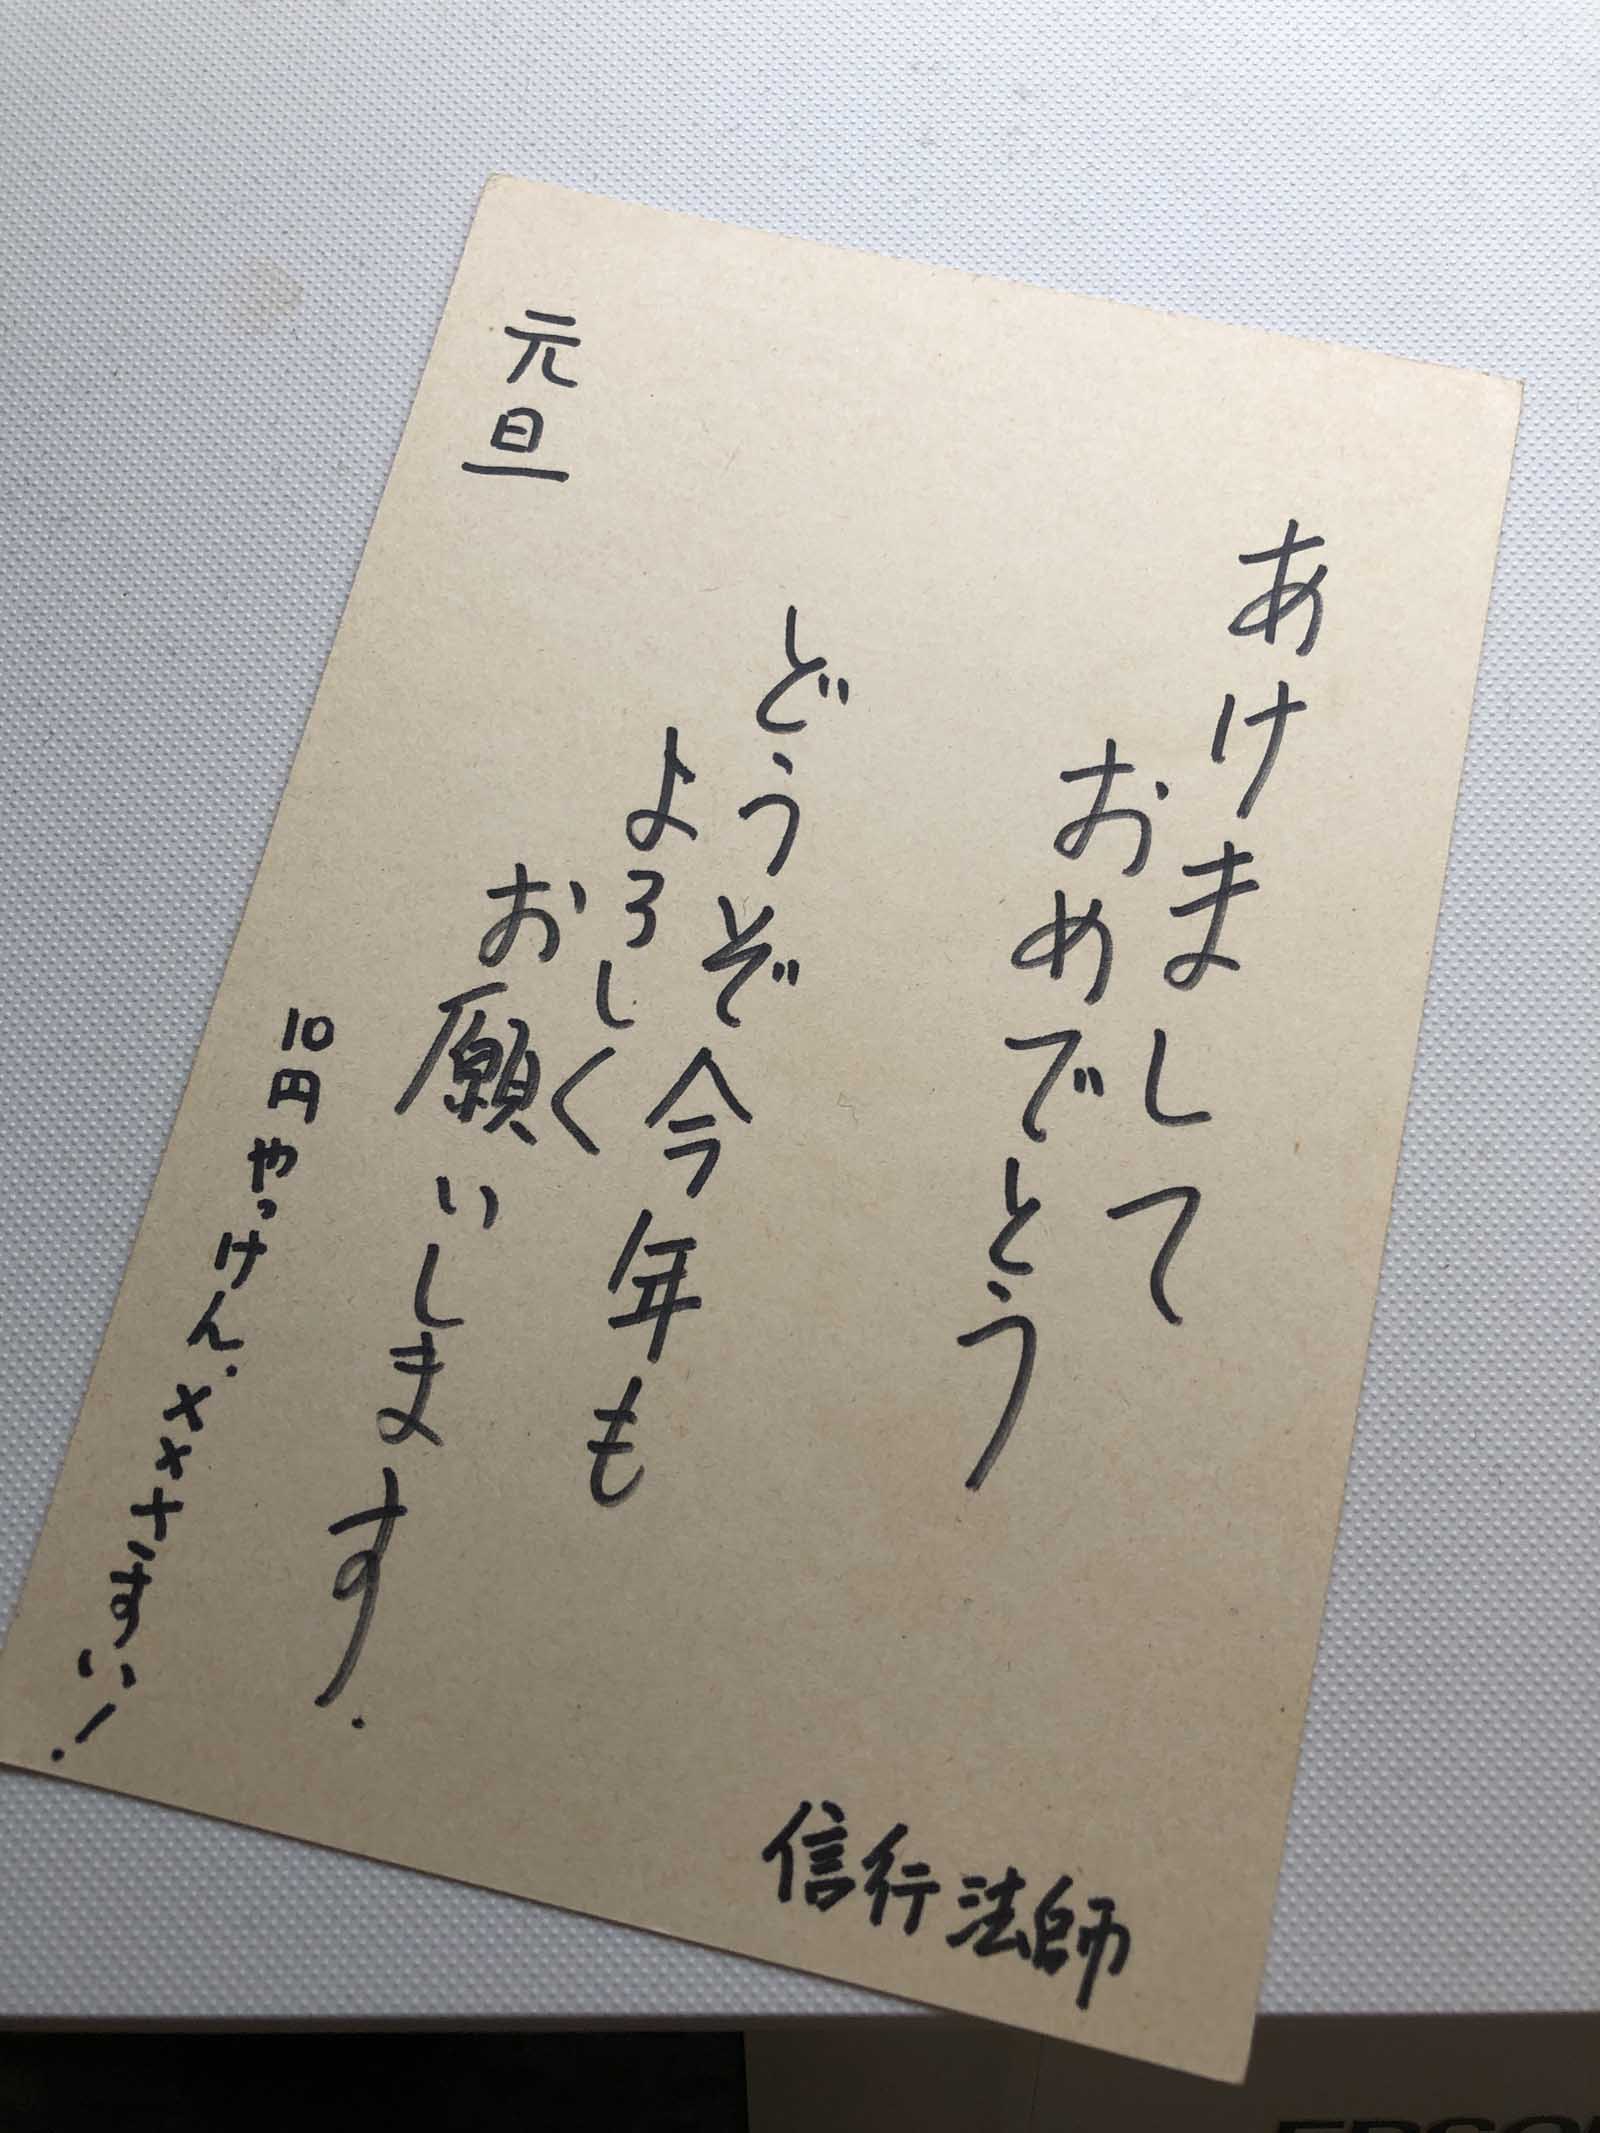 あけまして
おめでとう
どうぞ今年も
よろしく
お願いします.
元旦
10円やっけん.××十すい!
信行法師